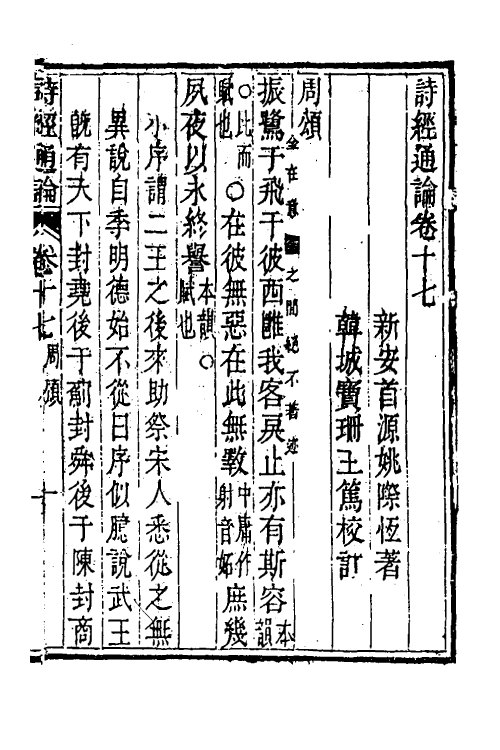 詩經通論卷十七
新安首源姚際恆著
韓城寶珊王篤校訂
周頌
全在意之間絕不著迹
振鷺于飛于彼西雝我客戾止亦有斯容本韻
○比而賦也○在彼無惡在此無斁中庸作射音妬庶幾
夙夜以永終譽本韻○賦也
小序謂二王之後來助祭宋人悉從之無
異說自季明德始不從曰序似臆說武王
旣有天下封堯後于薊封舜後于陳封商
詩經通論 卷十七 周頌 十一